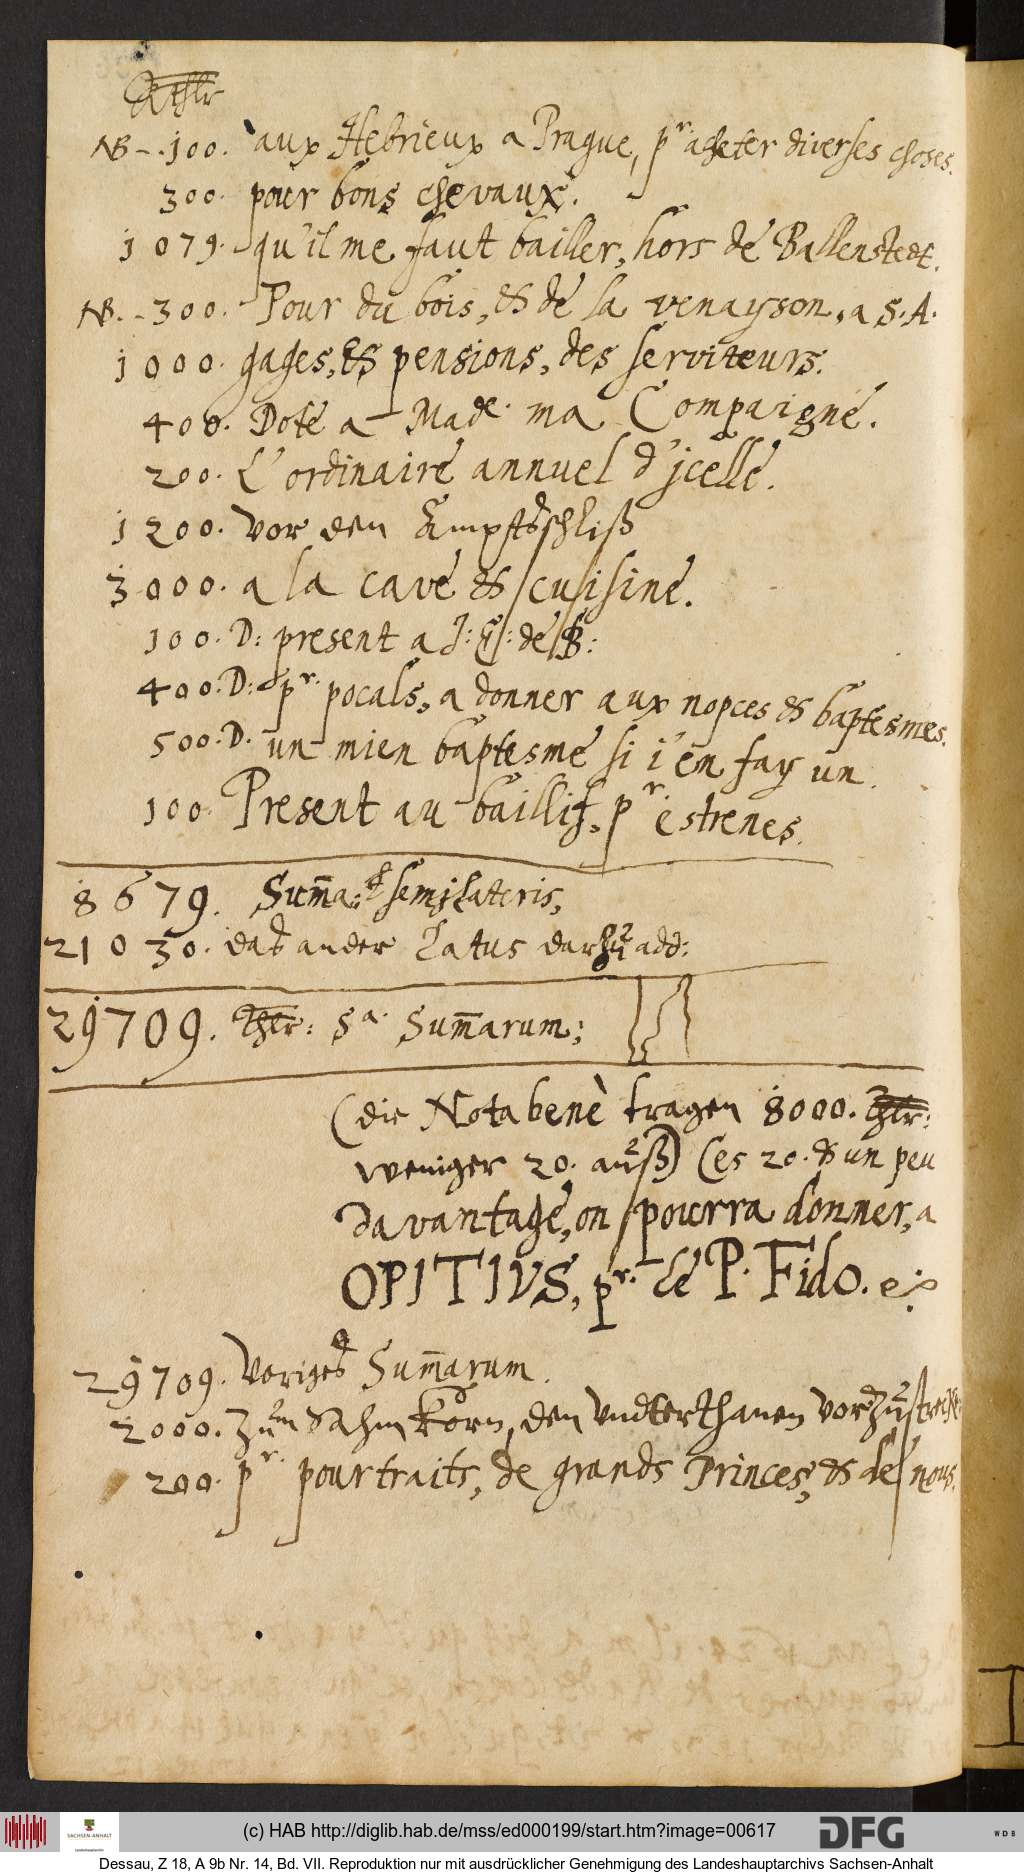 Rthlr
NB - . 100. aux Hebrieux a Prague, pr. acheter diverses choses.
300. pour bons chevaux.
1079. qu'il me faut bailler, hors de Ballenstedt.
NB. - 300. Pour du bois, & de la venayson, a S. A.
1000. gages, & pensions, des serviteurs.
400. Dote a Made. ma Compaigne.
200. L'ordinaire annuel d'jcelle.
1200. vor den
3000. a la cave & cuisine.
100. D: present a J: E: de B:
400. D: pr. pocals, a donner aux nopces & baptesmes.
500. D. un mien baptesme si i'en fay un.
100 Present au baillif, pr. estrenes.
8679. Summa: semilateris,
21030. daß ander Latus darzu add:
29709. Thlr: Sa. Summarum;
(die Nota benè tragen 8000. Thlr:
weniger 20. auß) Ces 20. & un peu
davantage, on pourra donner, a
OPITIUS, pr. le P. Fido.
29709. Voriges Summarum.
2000. Zum Sahmkorn, den Underthanen vorzustrecken
200. pr. pourtraits, de grands Princes, & de nous.
(c) HAB http://diglib.hab.de/mss/ed000199/start.htm?image=00617
SACHSEN-ANHALT
DFG
WDB
Dessau, Z 18, A 9b Nr. 14, Bd. VII. Reproduktion nur mit ausdrücklicher Genehmigung des Landeshauptarchivs Sachsen-Anhalt